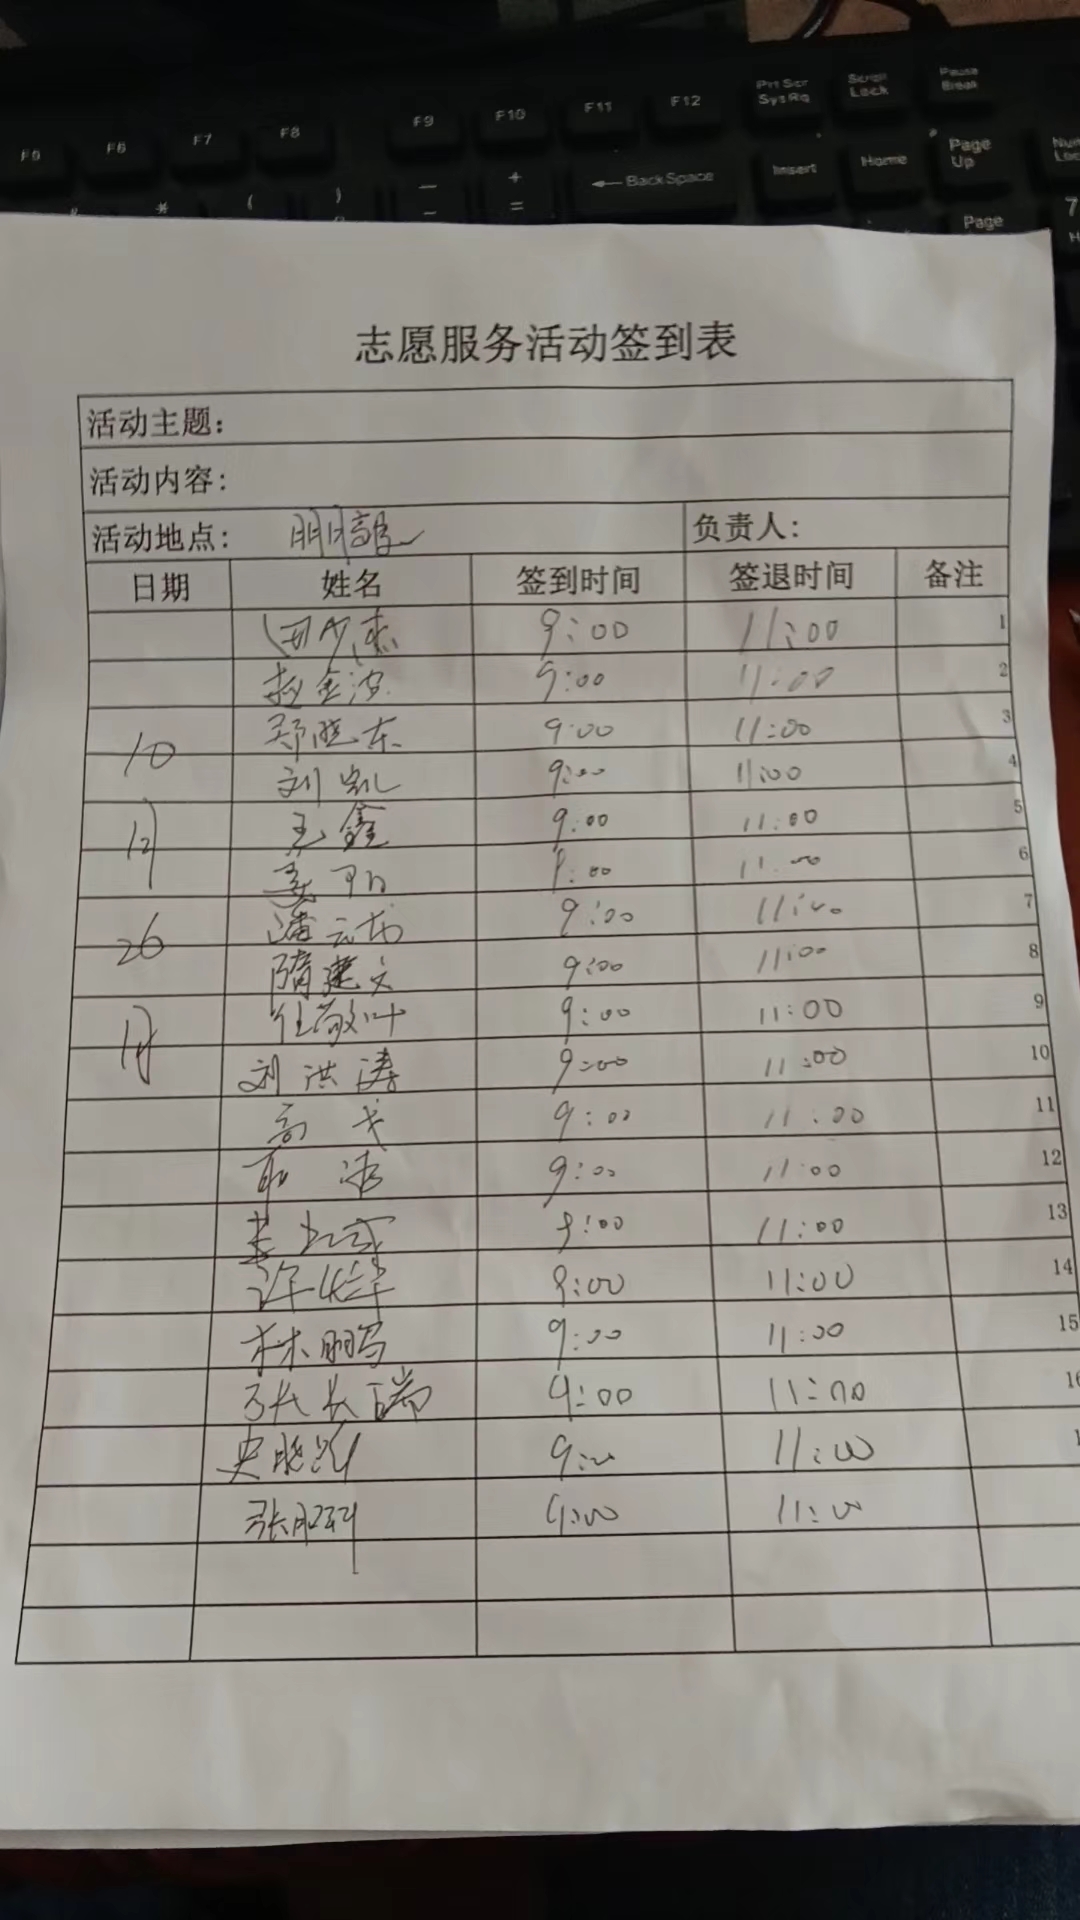 F6
F7
F8
F9
F10
F11
F12
Prt Scr
SysRq
Scroll
Lock
Pause
Break
BackSpace
Insert
Home
Page
Up
Page
志愿服务活动签到表
活动主题：
活动内容：
活动地点：
负责人：
日期 姓名 签到时间 签退时间 备注
9:00 11:00 1
赵金波 9:00 11:00 2
10 郑晓东 9:00 11:00 3
刘凯 9:00 11:00 4
月 王鑫 9:00 11:00 5
9:00 11:00 6
26 潘云龙 9:00 11:00 7
隋建文 9:00 11:00 8
日 任敬叶 9:00 11:00 9
刘洪涛 9:00 11:00 10
高 9:00 11:00 11
9:00 11:00 12
9:00 11:00 13
许 9:00 11:00 14
林鹏 9:00 11:00 15
张长瑞 9:00 11:00 16
史晓 9:00 11:00
张 9:00 11:00